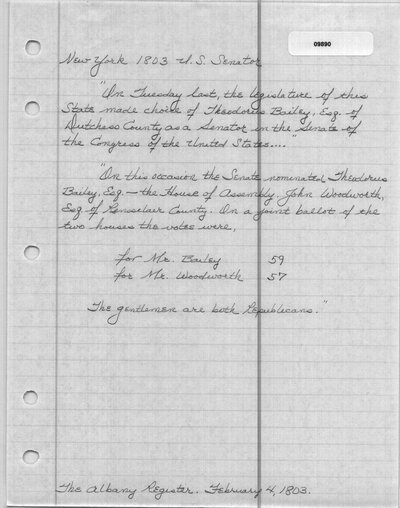 09890
New York 1803 U.S. Senator
"On Tuesday last, the legislature of this
State made choice of Theodorus Bailey, Esq. of
Dutchess County, as a Senator in the Senate of
the Congress of the United States...."
"On this occasion the Senate nominated Theodorus
Bailey, Esq. — the House of Assembly John Woodworth,
Esq. of Rensselair County. On a joint ballot of the
two houses the votes were,
for Mr. Bailey 59
for Mr. Woodworth 57
The gentlemen are both Republicans."
The Albany Register. February 4, 1803.